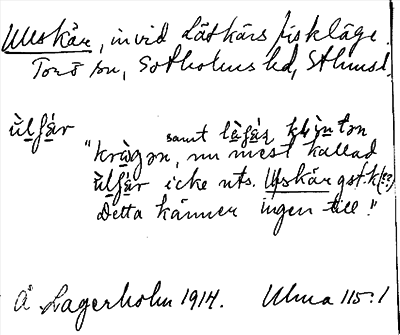 Ulvskär, invid Låtskärs fiskläge.
Torö sn, Sotholms hd, Sthmsl.
ùlfǝr
samt klìntǝn
"kràgǝn, nu mest kallad
ùlfǝr icke uts. Ulvskär gst.k(??)
Detta känner ingen till."
A Lagerholm 1914. Ulma 115:1